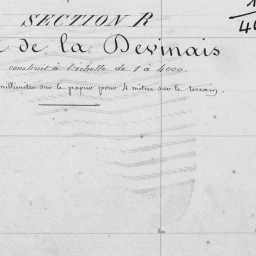 SECTION R
1
40
de la Devinais
construit à l'échelle de 1 à 4000.
millimètre sur le papier pour 4 mètres sur le terrain.